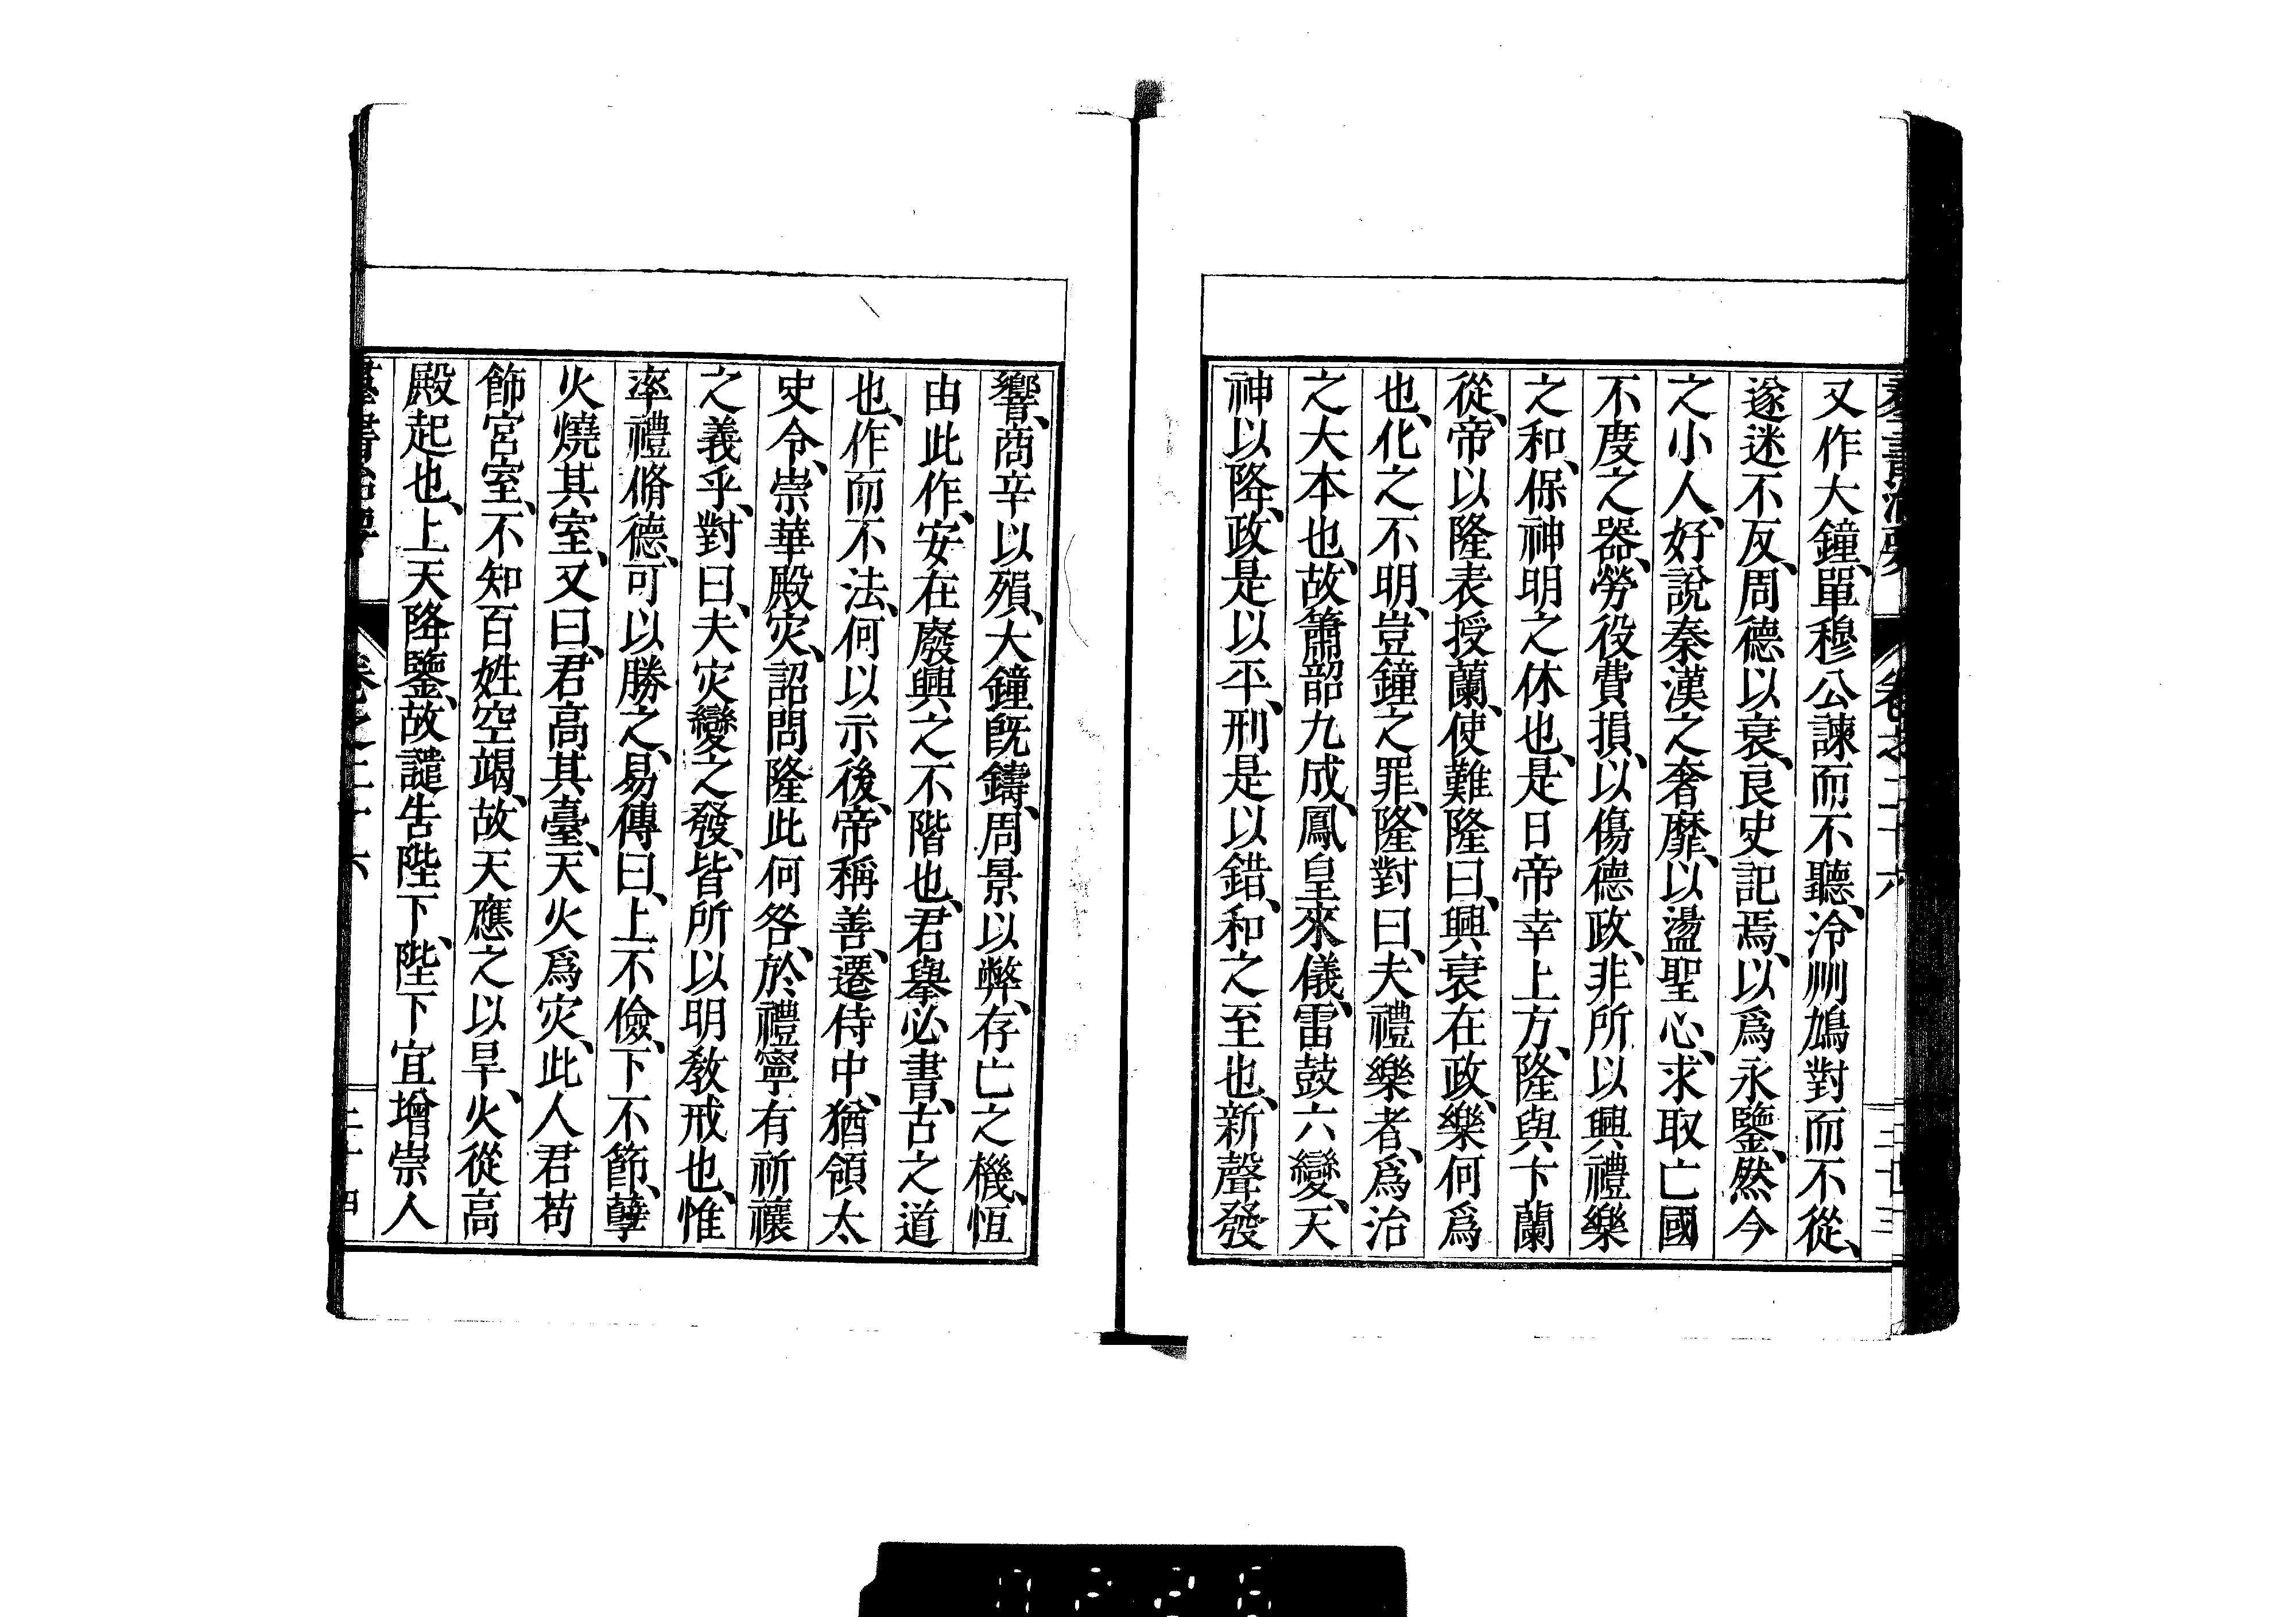 又作大鐘、單穆公諫而不聽、泠州鳩對而不從、
遂迷不反、周德以衰、良史記焉、以爲永鑒、然今
之小人、好說秦漢之奢靡、以盪聖心、求取亡國
不度之器、勞役費損、以傷德政、非所以興禮樂
之和、保神明之休也、是日帝幸上方、隆與卞蘭
從、帝以隆表授蘭、使難隆曰、興衰在政、樂何爲
也、化之不明、豈鐘之罪、隆對曰、夫禮樂者、爲治
之大本也、故簫韶九成、鳳皇來儀、雷鼓六變、天
神以降、政是以平、刑是以錯、和之至也、新聲發
響、商辛以殞、大鐘旣鑄、周景以弊、存亡之機、恆
由此作、安在廢興之不階也、君擧必書、古之道
也、作而不法、何以示後、帝稱善、遷侍中、猶領太
史令、崇華殿灾、詔問隆此何咎、於禮寧有祈禳
之義乎、對曰、夫灾變之發、皆所以明敎戒也、惟
率禮脩德、可以勝之、易傳曰、上不儉、下不節、孽
火燒其室、又曰、君高其臺、天火爲灾、此人君苟
飾宮室、不知百姓空竭、故天應之以旱、火從高
殿起也、上天降鑒、故譴告陛下、陛下宜增崇人